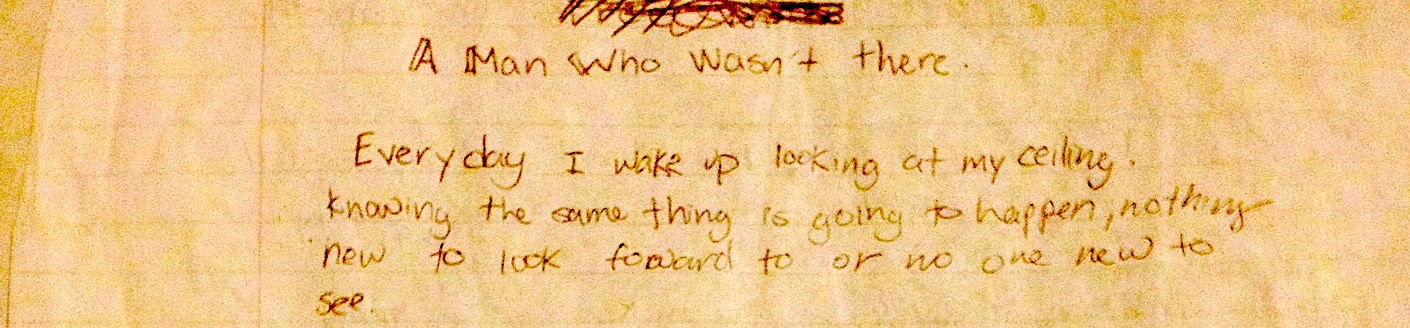 A Man Who Wasn't there.
Everyday I wake up looking at my ceiling.
knowing the same thing is going to happen, nothing
new to look foward to or no one new to
see.